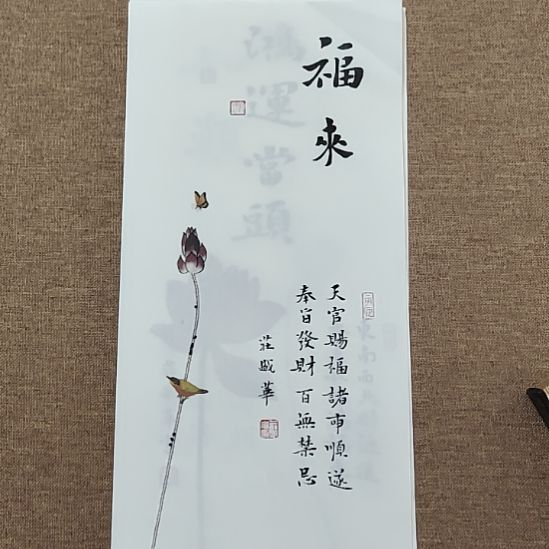 福来
天官賜福諸事順遂
奉旨發財百無禁忌
莊晟華
鴻運當頭